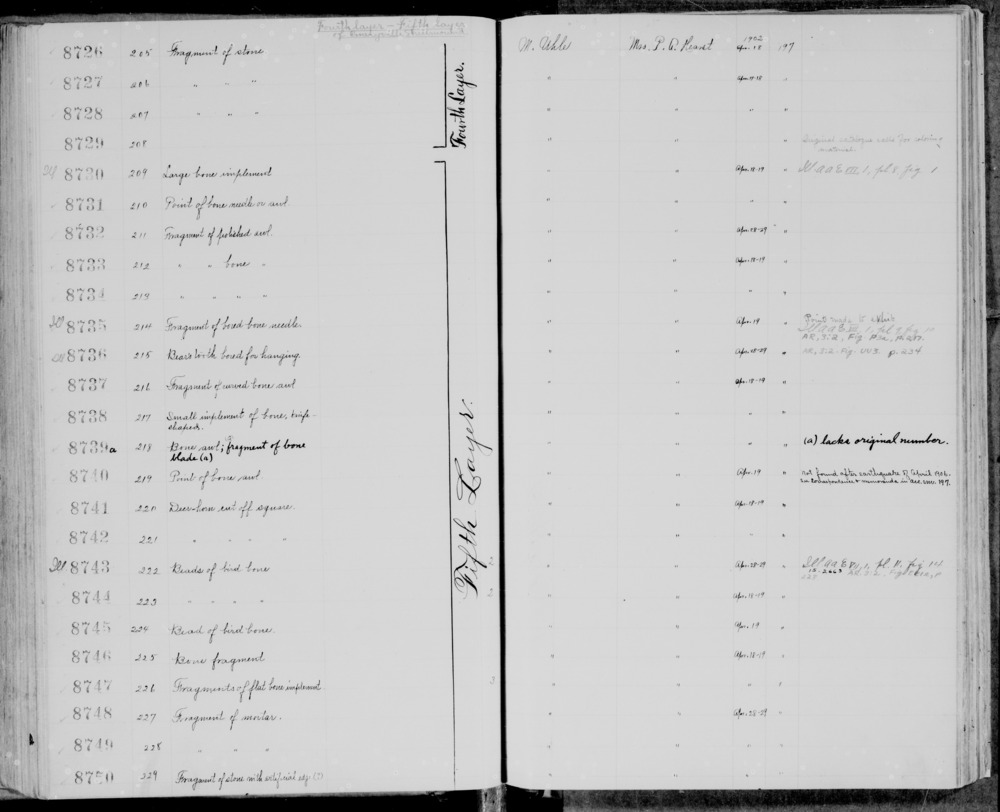 Fourth layer - Fifth layer
8726 205 Fragment of stone M. Uhle Mrs. P. A. Hearst 1902 Apr. 18 197
8727 206 " " " " " Apr. 18-18 "
8728 207 " " " " " " "
8729 208 " " " " Original catalogue calls for
material.
Fourth Layer.
Ill 8730 209 Large bone implement " " Apr. 18-19 " Ill AAE VII, 1, pl. 8, fig 1
8731 210 Point of bone needle or awl " " " "
8732 211 Fragment of polished awl. " " Apr. 18-29 "
8733 212 " " bone " " " Apr. 18-19 "
8734 213 " " " " " " " "
8735 214 Fragment of bored bone needle. " " Apr. 19 "
8736 215 Bear's tooth bored for hanging. " " Apr. 18-29 " AR, S:2, Fig. UU3 p. 234
8737 216 Fragment of curved bone awl " " Apr. 18-19 "
8738 217 Small implement of bone, knife-
shaped. " " " "
8739a 218 Bone awl; fragment of bone
blade (a) " " " " (a) lacks original number.
8740 219 Point of bone awl. " " Apr. 19 " Not found after earthquake of April 1906.
See correspondence & memoranda in acc. env. 197.
8741 220 Deer-horn cut off square. " " Apr. 18-19 "
8742 221 " " " " " " " "
Fifth Layer.
Ill 8743 222 Beads of bird bone " " Apr. 28-29 "
8744 223 " " " " " " Apr. 18-19 "
8745 224 Bead of bird bone. " " Apr. 19 "
8746 225 Bone fragment " " Apr. 18-19 "
8747 226 Fragments of flat bone implement. " " " "
8748 227 Fragment of mortar. " " Apr. 28-29 "
8749 228 " " " " " " "
8750 229 Fragment of stone with artificial edge (?) " " " "